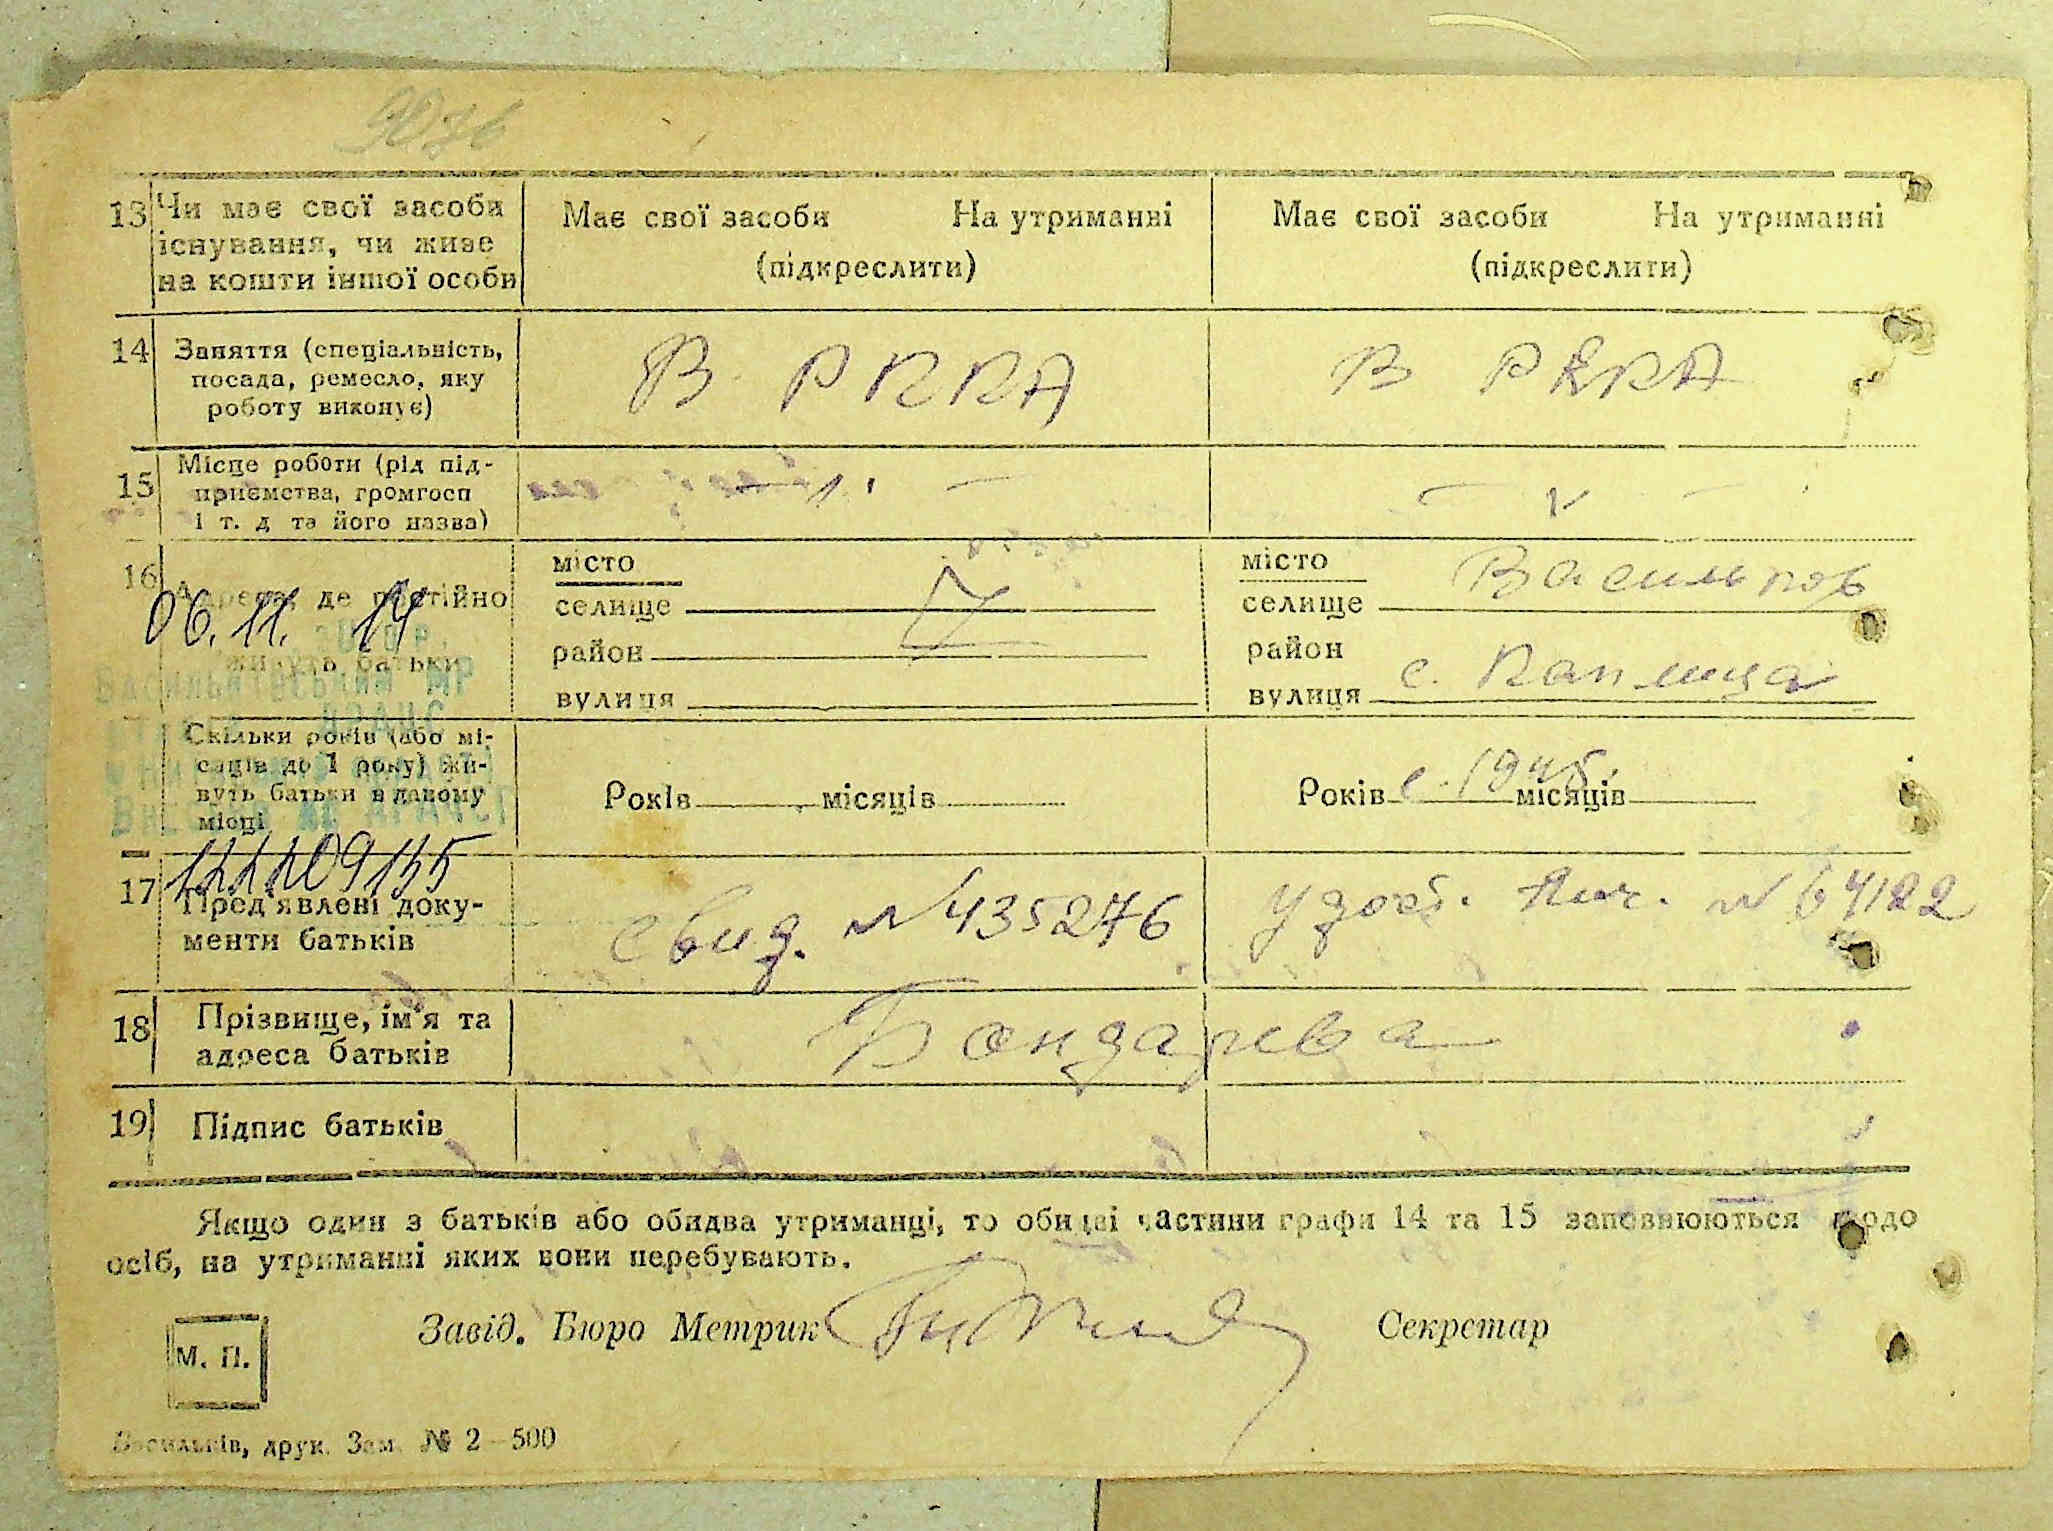 13 Чи має свої засоби Має свої засоби На утриманні Має свої засоби На утриманні
існування, чи живе
на кошти іншої особи (підкреслити) (підкреслити)
14 Заняття (спеціальність, В РККА В РККА
посада, ремесло, яку
роботу виконує)
15 Місце роботи (рід під-
приємства, громгосп
і т. д та його назва)
16 Адреса, де постійно
живуть батьки
06. 11. 14
місто
селище
район
вулиця
місто Васильков
селище
район
вулиця с. Каплица
Скільки років (або мі-
сяців до 1 року) жи-
вуть батьки в даному
місці
Років місяців Років с 1945 місяців
17 Пред'явлені доку-
менти батьків
свид. №435276 удост. лич. №64122
18 Прізвище, ім'я та
адреса батьків
Бондарева
19 Підпис батьків
Якщо один з батьків або обидва утриманці, то обидві частини графи 14 та 15 заповнюються щодо
осіб, на утриманні яких вони перебувають.
Завід. Бюро Метрик Секретар
М. П.
Васильків, друк. Зам. № 2—500